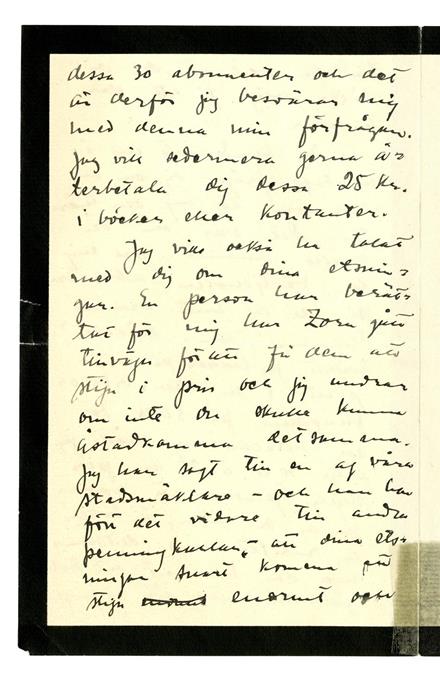 dessa 30 abonnenter och det
är derför jag besvärar mig
med denna min förfrågan.
Jag vill sedermera gerna å=
terbetala dig dessa 25 Kr.
i böcker eller Kontanter.
Jag ville också ha talat
med dig om dina etsnin=
gar. En person har berät=
tat för mig hur Zorn gått
tillväga för att få dem att
stiga i pris och jag undrar
om inte du skulle kunna
åstadkomma detsamma.
Jag har sagt till en af våra
stadsmäklare – och han har
fört det vidare till andra
penningkarlar, att dina ets=
ningar snart komma att
stiga enormt och